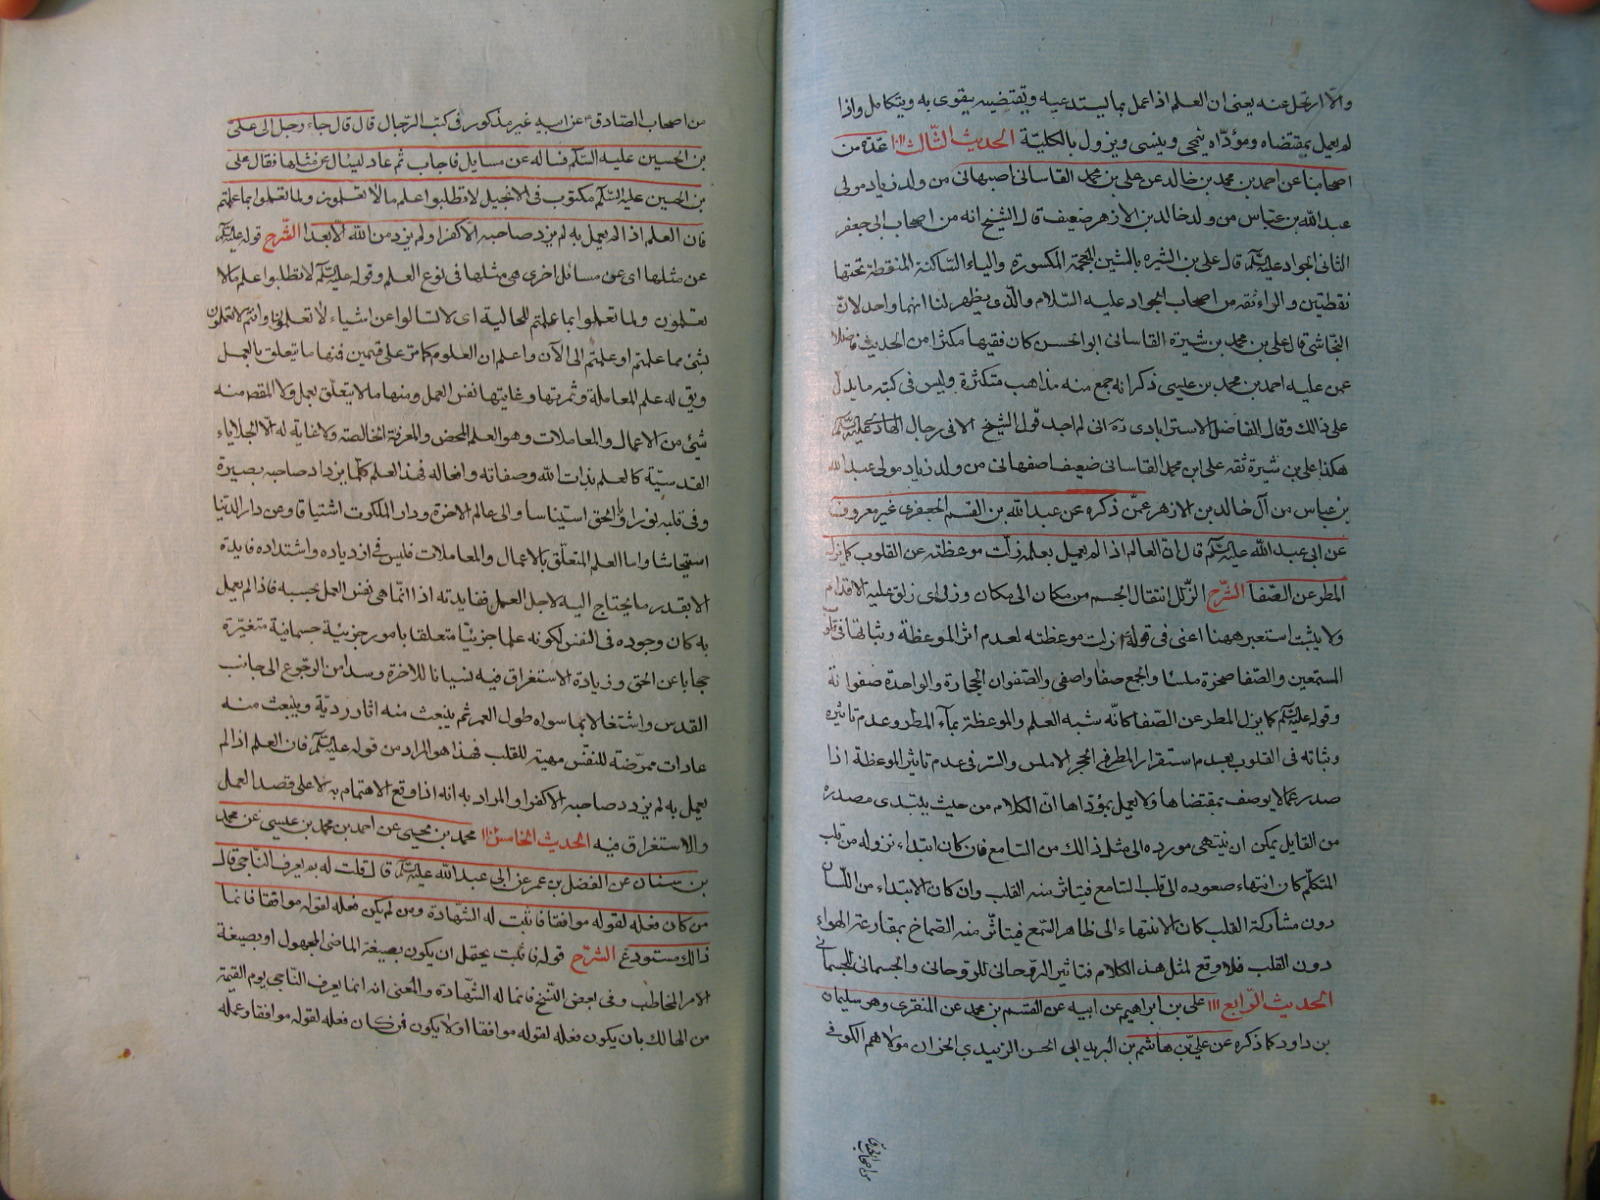 والا ارتحل عنه يعنى ان العلم اذا عمل بما يستدعيه ويقتضيه يقوى به ويتكامل واذا
لم يعمل بمقتضاه ومؤدّاه ينمحى وينسى ويزول بالكليّة الحديث الثّالث عدّة من
اصحابنا عن احمد بن محمد بن خالد عن على بن محمد القاسانى اصبهانى من ولد زياد مولى
عبد الله بن عباس من ولد خالد بن الازهر ضعيف قال الشيخ انه من اصحاب ابى جعفر
الثانى الجواد عليه السلم قال على بن الشيره بالشين المعجمة المكسورة والياء السّاكنة المنقطة تحتها
نقطتين والراء ثقه من اصحاب الجواد عليه السّلام والّذى يظهر لنا انهما واحد لانّ
النّجاشى قال على بن محمد بن شيرة القاسانى ابو الحسن كان فقيها مكثرا من الحديث فاضلا
غمز عليه احمد بن محمد بن عيسى ذكر انه سمع منه مذاهب متكثرة وليس فى كتبه ما يدلّ
على ذالك وقال الفاضل الاسترابادى ره انى لم اجد قول الشيخ الا فى رجال الهادى عليه السلم
هكذا على بن شيرة ثقه على ابن محمد القاسانى ضعيف اصفهانى من ولد زياد مولى عبد الله
بن عباس من آل خالد بن الازهر عمّن ذكره عن عبد الله بن القسم الجعفرى غير معروف
عن ابى عبد الله عليه السلم قال انّ العالم اذا لم يعمل بعلمه زلّت موعظته عن القلوب كما يزلّ
المطر عن الصّفا الشّرح الزّلل انتقال الجسم من مكان الى مكان وزلّ اى زلق عليه الاقدام
ولا يثبت استعير ههنا اعنى فى قوله زلت موعظته لعدم اثر الموعظة وثباتها فى قلب
المستمعين والصّفا صخرة ملسا والجمع صفا واصفى والصّفوان الحجارة والواحدة صفوانة
وقوله عليه السلم كما يزل المطر عن الصّفا كانّه شبه العلم والموعظة بمآء المطر وعدم تاثيره
وثباته فى القلوب بعدم استقرار المطر فى الحجر الاملس والسّر فى عدم تاثير الموعظة اذا
صدر عمّا لا يوصف بمقتضاها ولا يعمل بمؤدّاها انّ الكلام من حيث يبتدى مصدره
من القايل يمكن ان ينتهى مورده الى مثل ذالك من السّامع فان كان ابتداء نزوله من قلب
المتكلّم كان انتهاء صعوده الى قلب السّامع فيتاثر منه القلب وان كان الابتداء من اللّسان
دون مشاركة القلب كان الانتهاء الى ظاهر السّمع فيتاثّر منه الصّماخ بمقارعة الهواء
دون القلب فلا وقع لمثل هذ الكلام فتاثير الرّوحانى للرّوحانى والجسمانى للجسمانى
الحديث الرّابع على بن ابراهيم عن ابيه عن القسم بن محمد عن المنقرى وهو سليمان
بن داود كما ذكره عن علىّ بن هاشم بن البريد ابى الحسن الزبيدى الخزان مولاهم الكوفى
من اصحاب الصّادق عن ابيه غير مذكور فى كتب الرّجال قال قال جاء رجل الى على
بن الحسين عليه السّلم فساله عن مسايل فاجاب ثم عاد ليسال عن مثلها فقال على
بن الحسين عليه السّلم مكتوب فى الانجيل لا تطلبوا علم ما لا تعلمون ولما تعملوا بما علمتم
فان العلم اذا لم يعمل به لم يزد صاحبه الا كفرا ولم يزد من الله الا بعدا الشّرح قوله عليه السلم
عن مثلها اى عن مسائل اخرى هى مثلها فى نوع العلم وقوله عليه السلم لا تطلبوا علم ما لا
تعلمون ولما تعملوا بما علمتم للحالية اى لا تسالوا عن اشياء لا تعلمونها وانتم لا تعملون
بشئ مما علمتم او علمتم الى الآن واعلم ان العلوم كما مرّ على قسمين فمنها ما يتعلق بالعمل
ويق له علم المعاملة وثمرتها وغايتها نفس العمل ومنها ما لا يتعلّق بعمل ولا المقصد منه
شئ من الاعمال والمعاملات وهو العلم المحض والمعرفة الخالصة ولا غاية له الا الجلاياء
القدسيّة كالعلم بذات الله وصفاته وافعاله فهذ العلم كلّما يزداد صاحبه بصيرة
وفى قلبه نورا والى الحق استيناسا والى عالم الآخرة ودار الملكوت اشتياقا ومن دار الدنيا
استيحاشا واما العلم المتعلّق بالاعمال والمعاملات فليس فى ازدياده واشتداده فايدة
الا بقدر ما يحتاج اليه لاجل العمل ففايدته اذا انّما هى نفس العمل بحسبه فاذا لم يعمل
به كان وجوده فى النفس لكونه علما جزئيّا متعلقا بامور جزئية جسمانية متغيّرة
حجابا عن الحق وزيادة الاستغراق فيه نسيانا للاخرة وسدا من الرّجوع الى جانب
القدس واشتغلالا بما سواه طول العمر ثم ينبعث منه اثار رديّة وينبعث منه
عادات ممرّضة للنفس مهية للقلب فهذا هو المراد من قوله عليه السلم فان العلم اذا لم
يعمل به لم يزدد صاحبه الا كفرا والمراد به انه اذا وقع الاهتمام به لا على قصد العمل
والاستغراق فيه الحديث الخامس محمد بن يحيى عن احمد بن محمد بن عيسى عن محمد
بن سنان عن المفضل بن عمر عن ابى عبد الله عليه السلم قال قلت له بم يعرف النّاجى قال
من كان فعله لقوله موافقا فاثبت له الشّهادة ومن لم يكن فعله لقوله موافقا فانما
ذالك مستودع الشّرح قوله فاثبت يحتمل ان يكون بصيغة الماضى المجهول او بصيغة
الامر المخاطب وفى بعض النّسخ فانما له الشّهادة والمعنى انه انما يعرف النّاجى يوم القيمة
من الهالك بان يكون فعله لقوله موافقا او لا يكون فمن كان فعله لقوله موافقا وعمله
من اصحاب